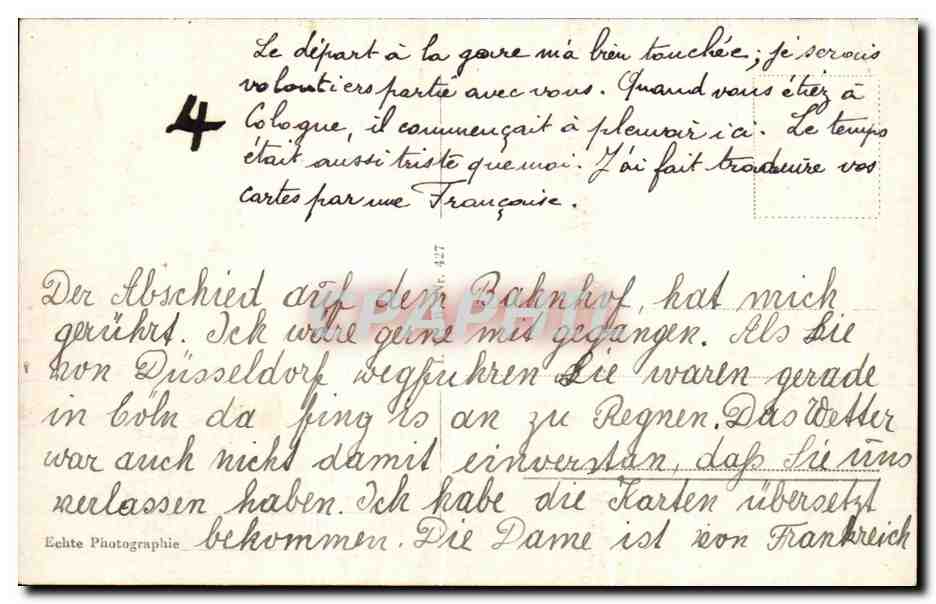 Le départ à la gare m'a bien touchée; je serais
volontiers partie avec vous. Quand vous étiez à
4
Cologne, il commençait à pleuvoir ici. Le temps
était aussi triste que moi. J'ai fait traduire vos
cartes par une Française.
Nr. 427
Der Abschied auf dem Bahnhof, hat mich
gerührt. Ich wäre gerne mit gegangen. Als Sie
von Düsseldorf wegfuhren Sie waren gerade
in Cöln da fing es an zu Regnen. Das Wetter
war auch nicht damit einverstan, daß Sie uns
verlassen haben. Ich habe die Karten übersetzt
Echte Photographie bekommen. Die Dame ist von Frankreich